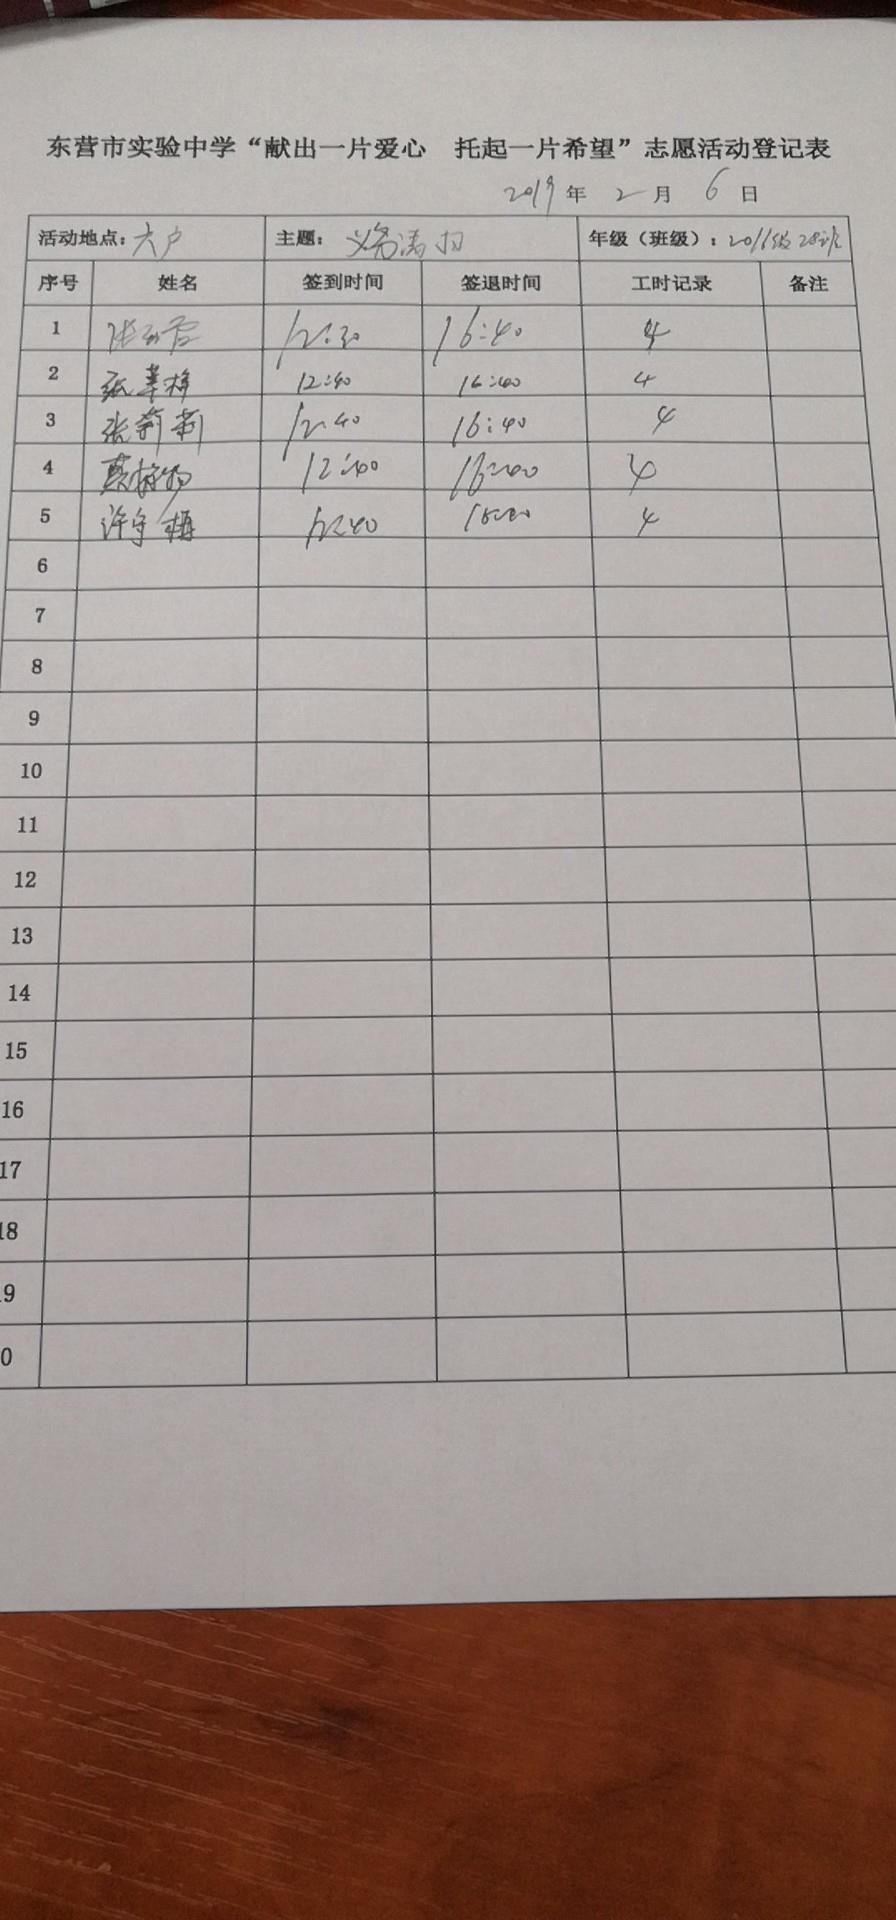 东营市实验中学“献出一片爱心 托起一片希望”志愿活动登记表
2019年 2月 6日
活动地点：六户 主题：义务清扫 年级（班级）：2011级28班
序号 姓名 签到时间 签退时间 工时记录 备注
1 12:30 16:40 4
2 12:40 16:40 4
3 张莉莉 12:40 16:40 4
4 12:40 16:40 4
5 许守梅 12:40 4
6
7
8
9
10
11
12
13
14
15
16
17
18
9
0